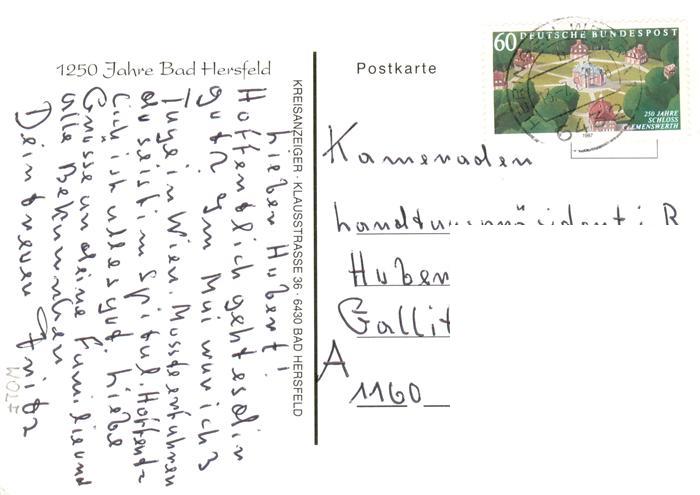 1250 Jahre Bad Hersfeld
Lieber Hubert!
Hoffendlich geht es dir
gut. Jm Mai war ich 3
Tage in Wien. Musste erfahren
du seist im Spital. Hoffend-
lich ist alles gut. Liebe
Grüsse an deine Familie und
alle Bekannten
Dein treuer Fritz
KREISANZEIGER · KLAUSSTRASSE 36 · 6430 BAD HERSFELD
Postkarte
60 DEUTSCHE BUNDESPOST
250 JAHRE
SCHLOSS
CLEMENSWERTH
1987
Kameraden
i R
Huber
Gallit
A
1160